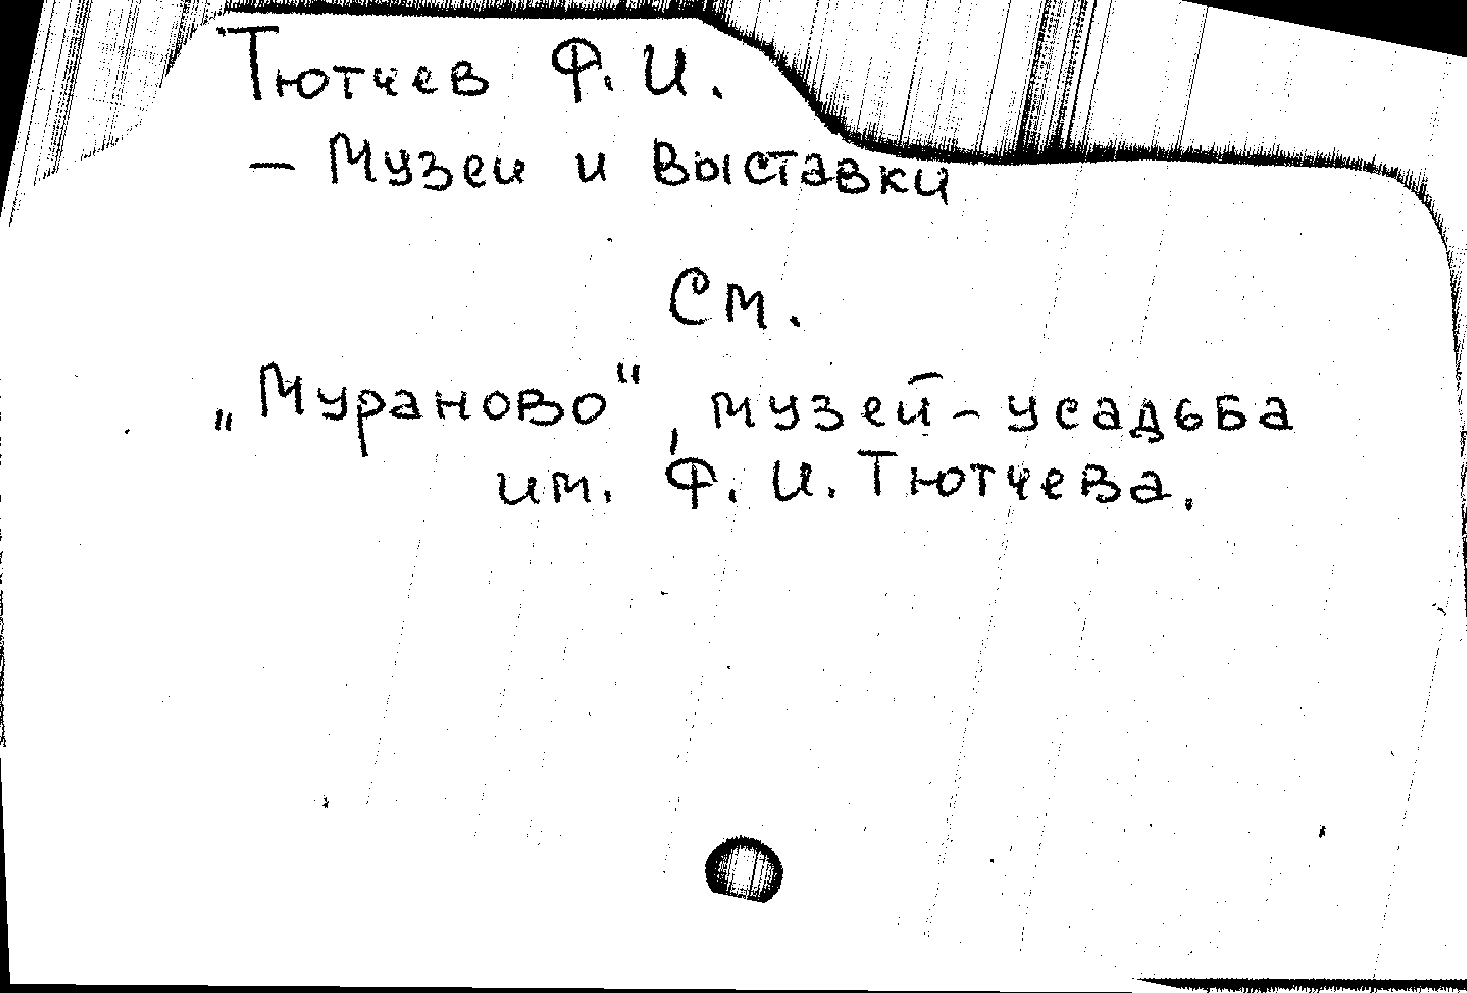 Тютчев Ф. И.
— Музеи и выставки
См.
„Мураново", музей-усадьба
им. Ф. И. Тютчева.